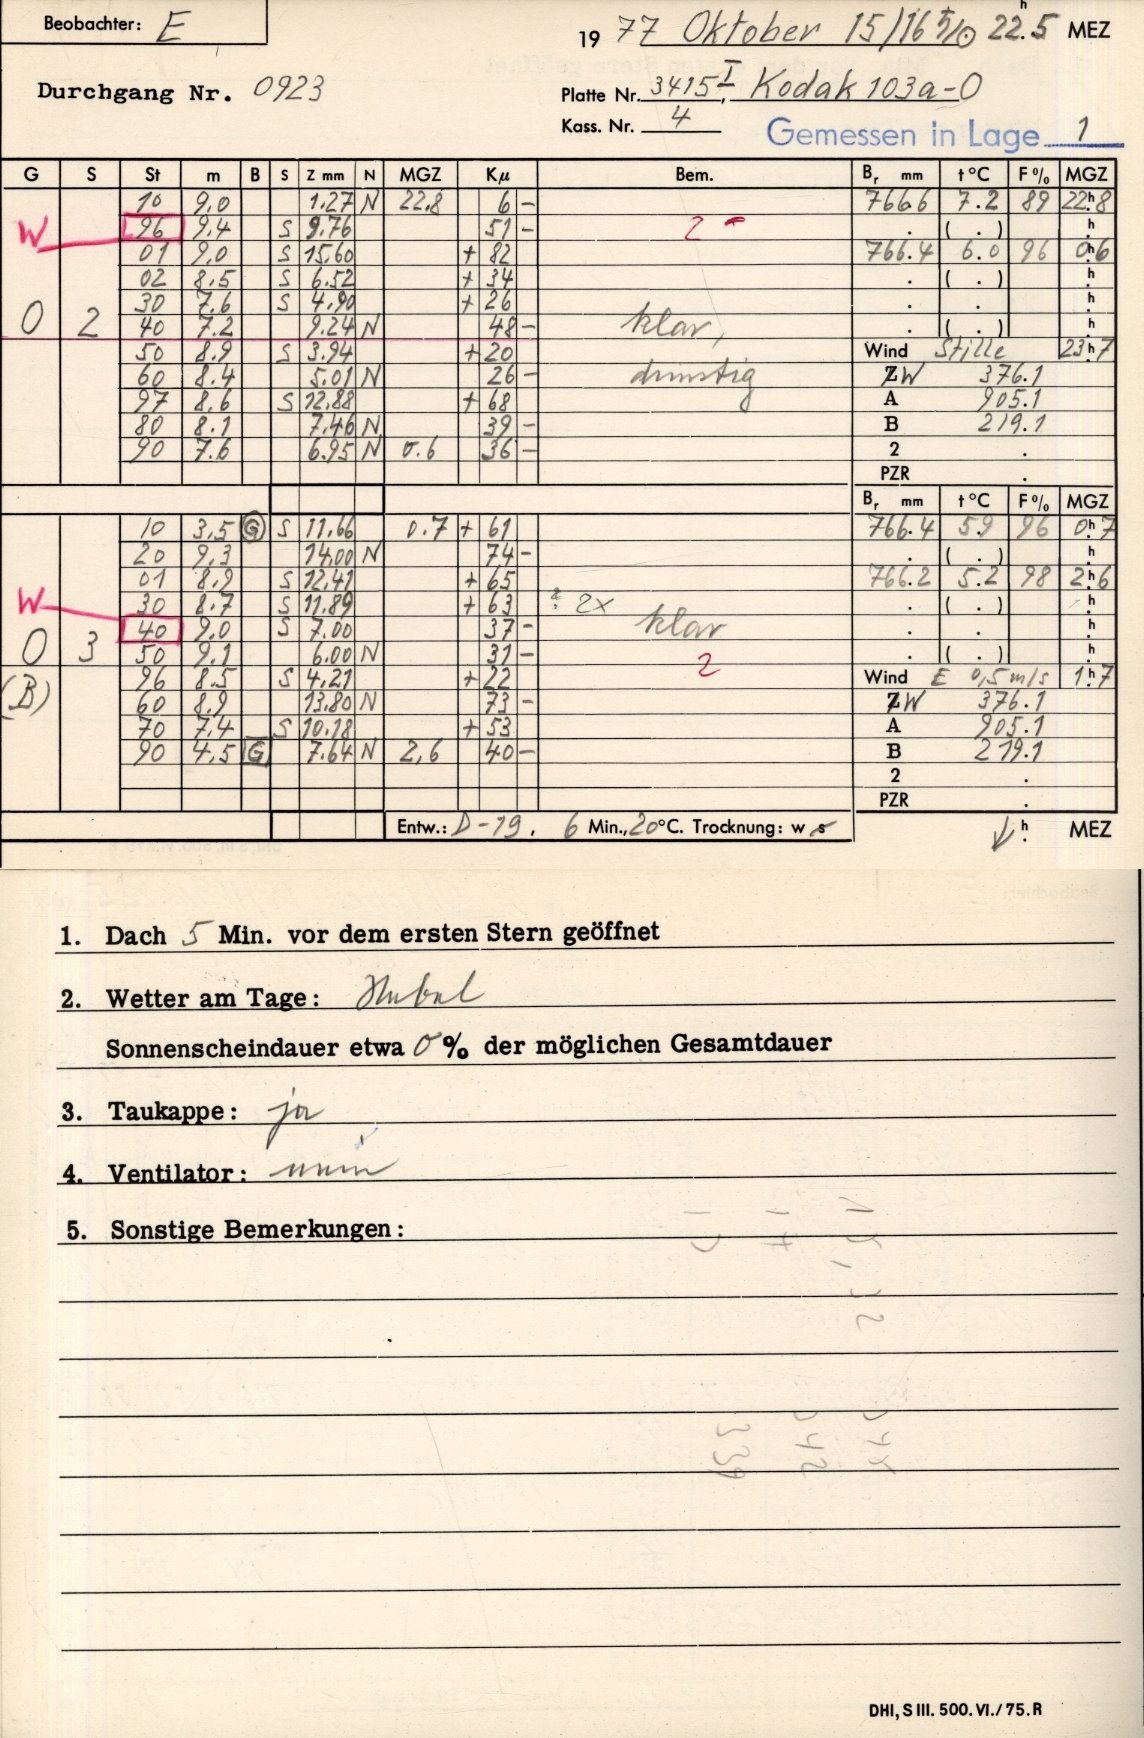 Beobachter: E
19 77 Oktober 15/16 ♄/☉ 22h.5 MEZ
Durchgang Nr. 0923
Platte Nr. 3415 I, Kodak 103a-O
Kass. Nr. 4
Gemessen in Lage 1
G S St m B S Z mm N MGZ Kμ Bem. Br mm t °C F% MGZ
10 9,0 1.27 N 22.8 6 - 766.6 7.2 89 22h8
W 96 9,4 S 9.76 51 - 2 - . ( . ) h
01 9,0 S 15.60 + 82 766.4 6.0 96 0h6
02 8.5 S 6.52 + 34 . ( . ) h
30 7.6 S 4.90 + 26 . . h
O 2 40 7.2 9.24 N 48 - klar, . ( . ) h
50 8.9 S 3.94 + 20 Wind Stille 23h7
60 8.4 5.01 N 26 - dunstig ZW 376.1
97 8,6 S 12.88 + 68 A 905.1
80 8.1 7.46 N 39 - B 219.1
90 7.6 6.95 N 0.6 36 - 2 .
PZR .
Br mm t °C F% MGZ
10 3,5 G S 11.66 0.7 + 61 766.4 5.9 96 0h7
20 9,3 14.00 N 74 - . ( . ) h
01 8.9 S 12.41 + 65 766.2 5.2 98 2h6
W 30 8.7 S 11.89 + 63 ? 2x . ( . ) h
40 9,0 S 7.00 37 - klar . . h
O 3 50 9,1 6.00 N 31 - 2 . ( . ) h
(B) 96 8.5 S 4.21 + 22 Wind E 0,5 m/s 1h7
60 8.9 13.80 N 73 - ZW 376.1
70 7.4 S 10.18 + 53 A 905.1
90 4.5 G 7.64 N 2,6 40 - B 219.1
2 .
PZR .
Entw.: D-19, 6 Min., 20°C. Trocknung: w s h. MEZ
1. Dach 5 Min. vor dem ersten Stern geöffnet
2. Wetter am Tage: Nebel
Sonnenscheindauer etwa 0% der möglichen Gesamtdauer
3. Taukappe: ja
4. Ventilator: nein
5. Sonstige Bemerkungen:
DHI, S III. 500. VI./75. R